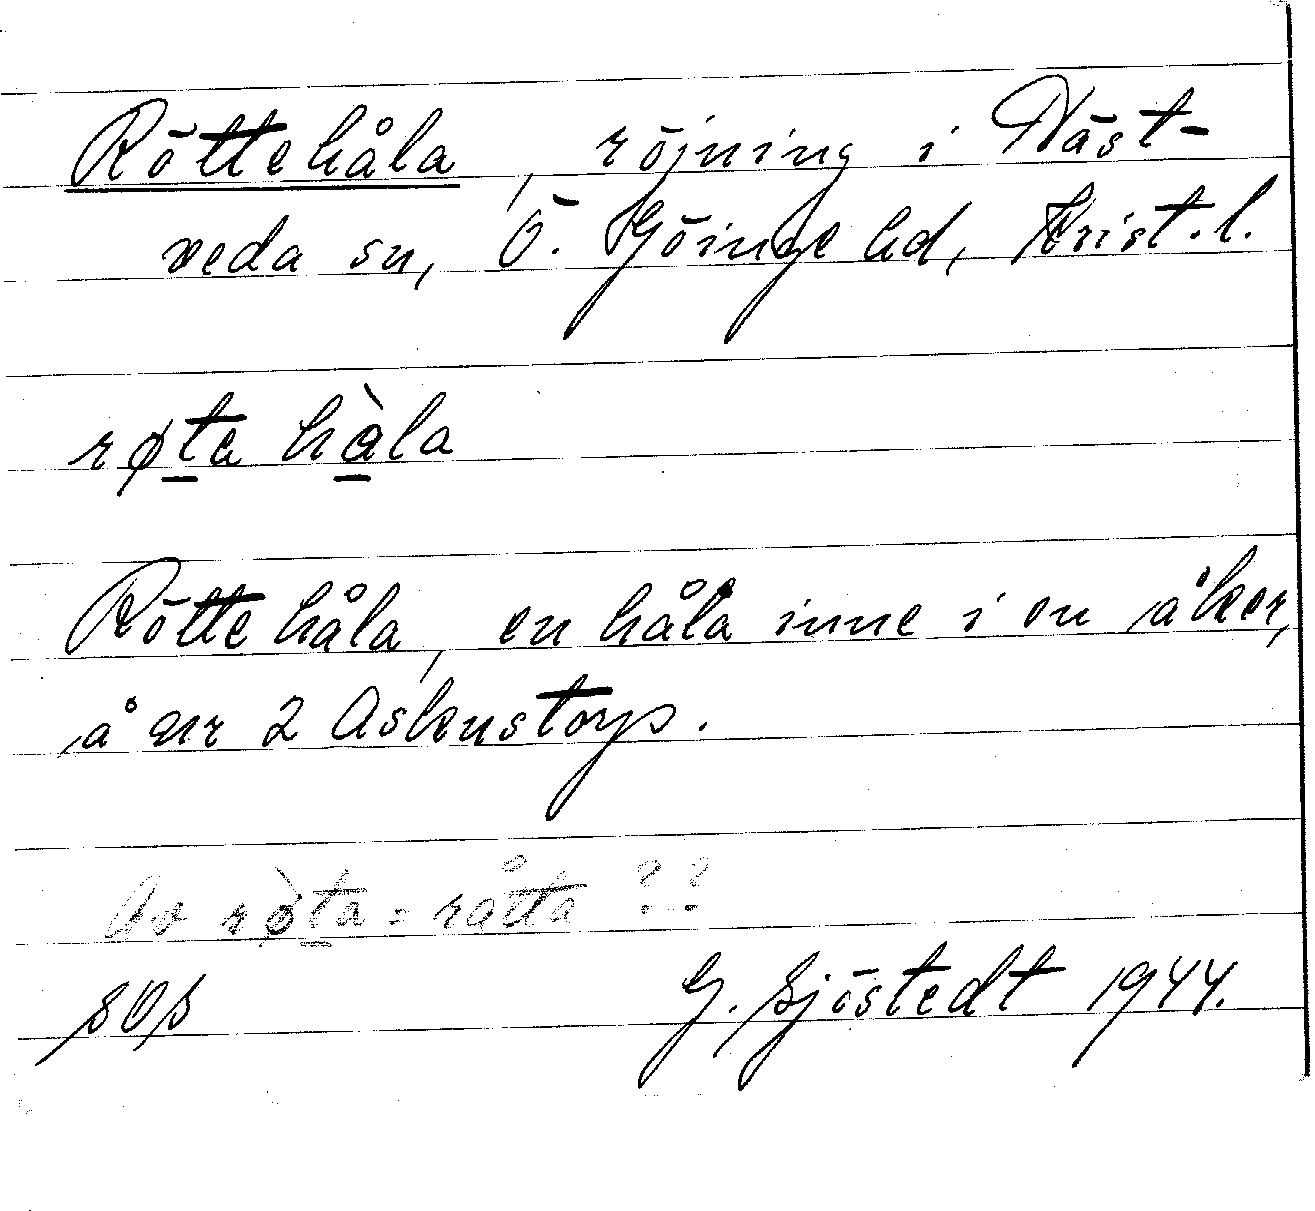 Röttehåla, röjning i Näst-
veda sn, Ö. Göinge hd, Krist. l.
røta hàla
Röttehåla, en håla inne i en åker,
å nr 2 Askenstorp.
Av røta = råtta ??
G. Sjöstedt 1944.